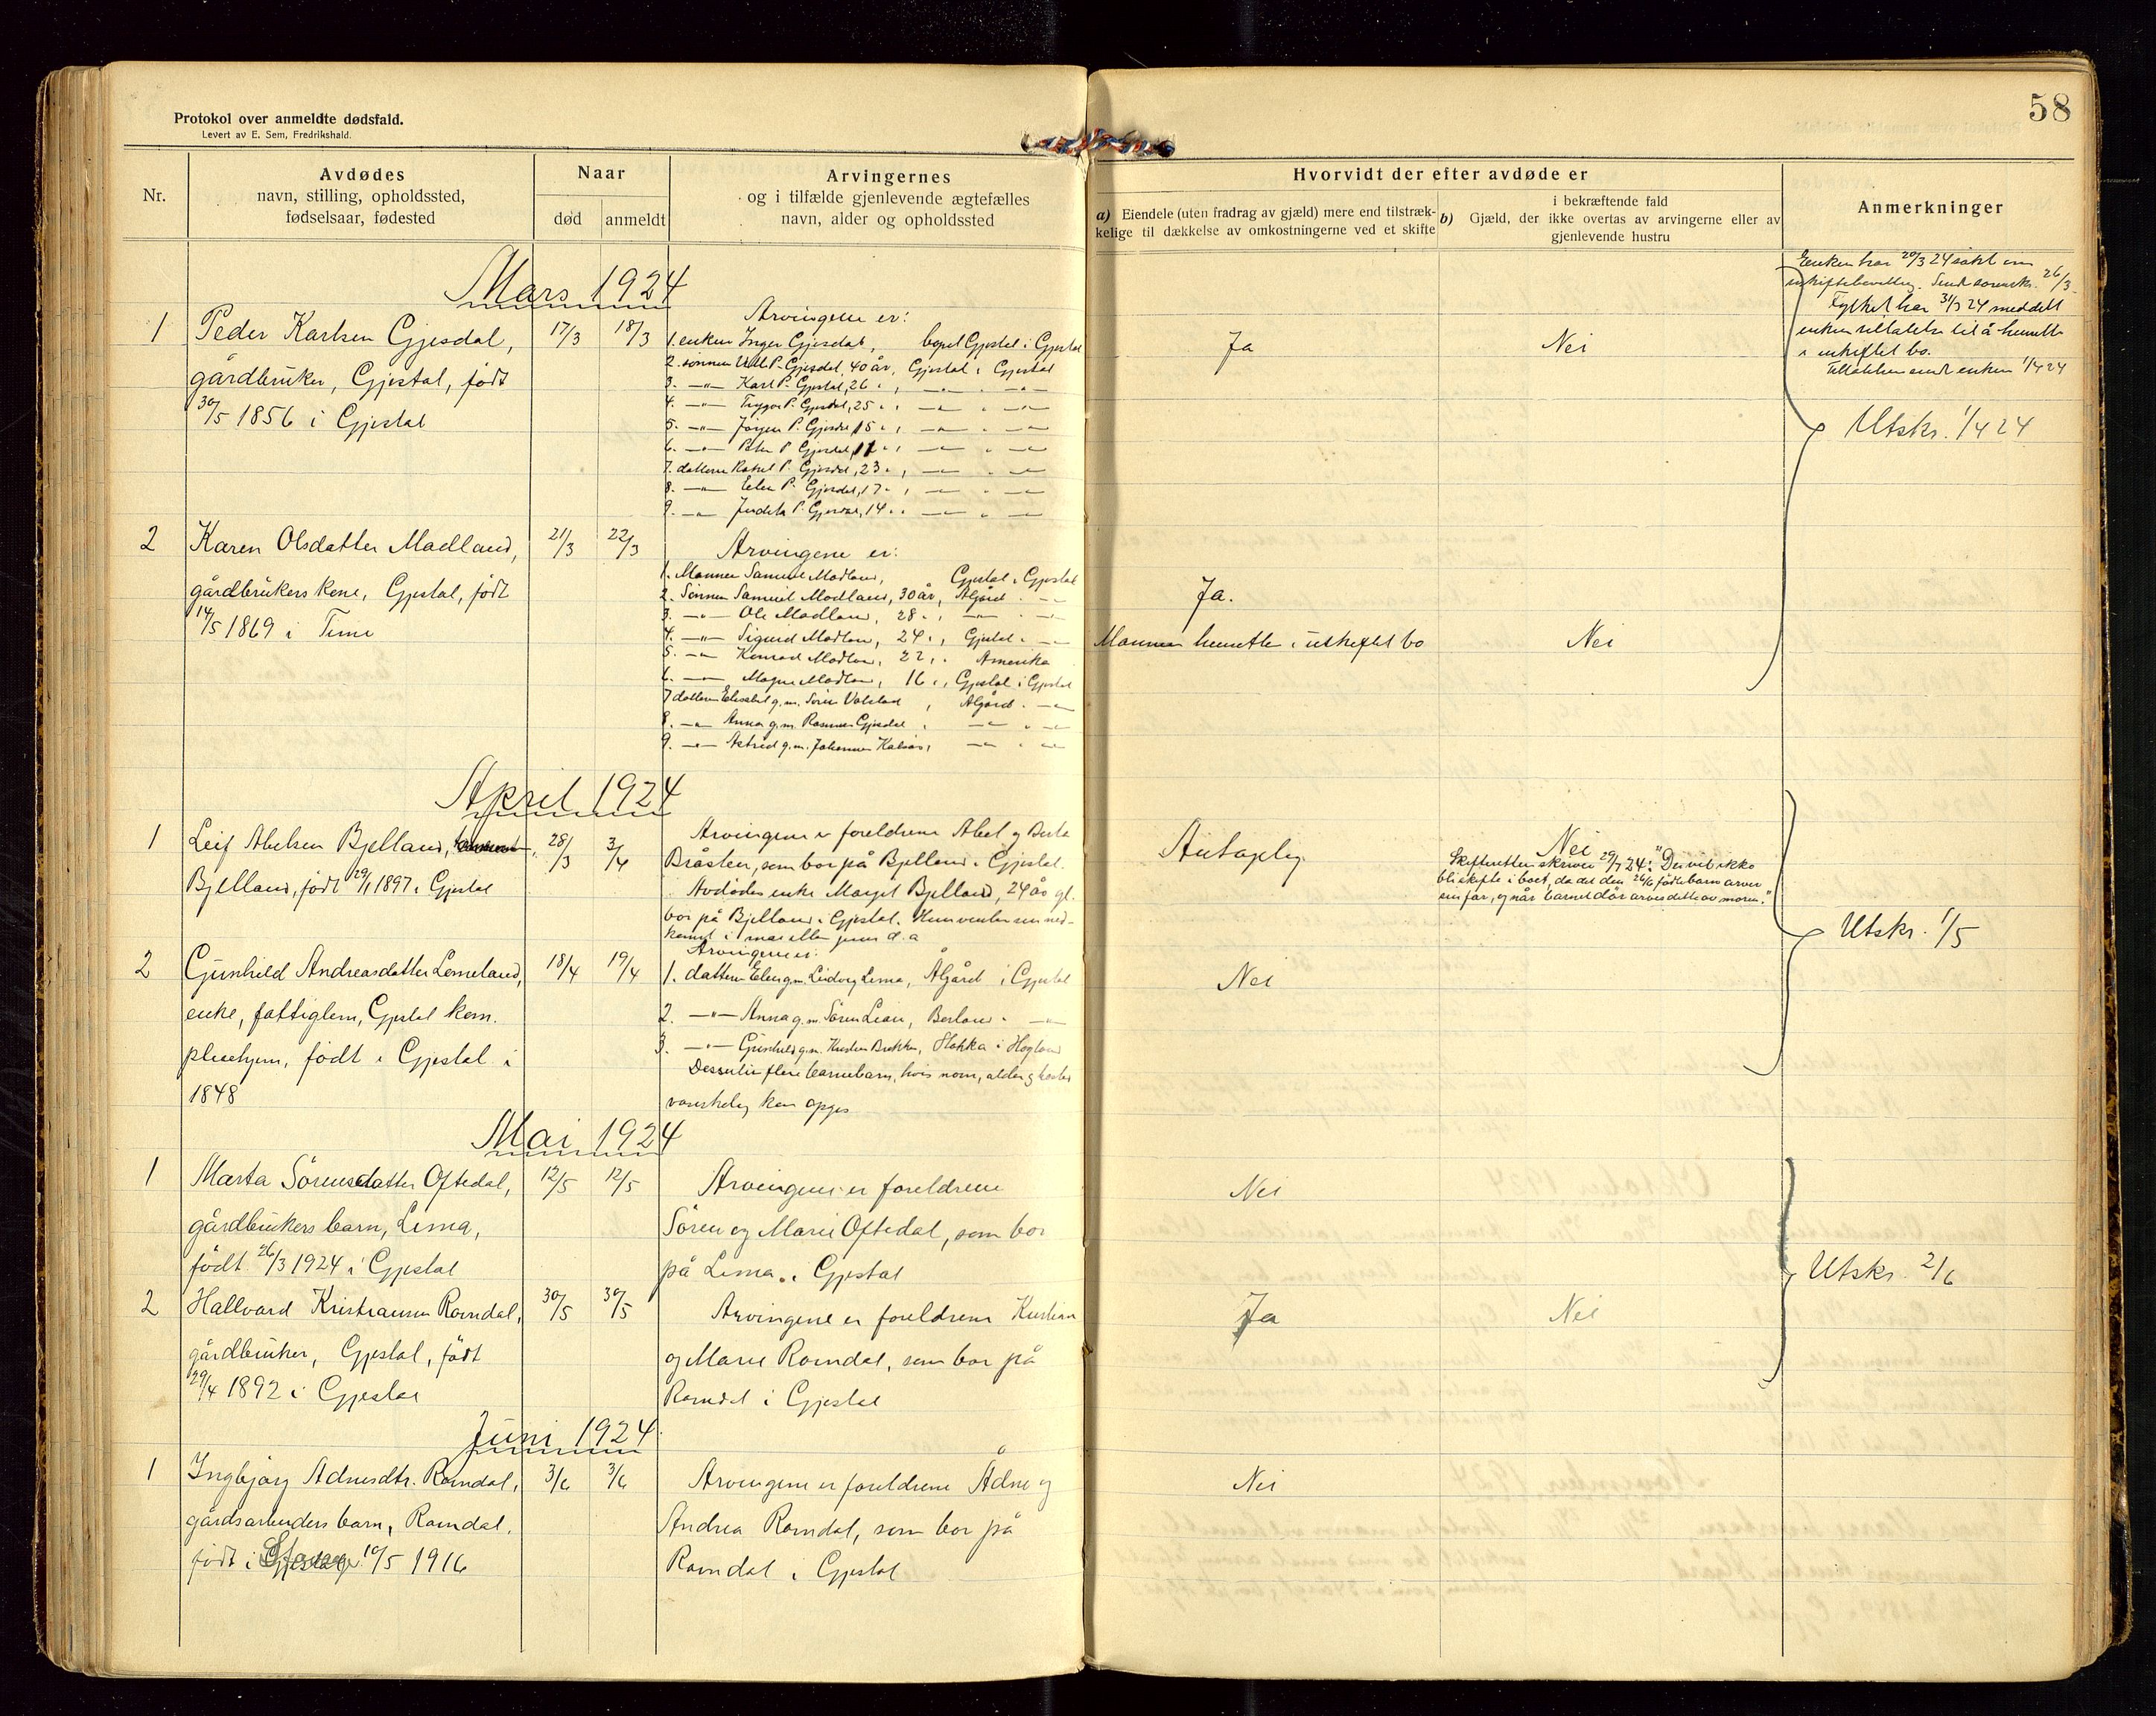 58
Protokol over anmeldte dødsfald.
Levert av E. Sem, Fredrikshald.
Nr.
Avdødes
navn, stilling, opholdssted,
fødselsaar, fødested
Naar
død
anmeldt
Arvingernes
og i tilfælde gjenlevende ægtefælles
navn, alder og opholdssted
Hvorvidt der efter avdøde er
a) Eiendele (uten fradrag av gjæld) mere end tilstræk-
kelige til dækkelse av omkostningerne ved et skifte
i bekræftende fald
b) Gjæld, der ikke overtas av arvingerne eller av
gjenlevende hustru
Anmerkninger
Mars 1924
1
Peder Karlsen Gjesdal,
gårdbruker, Gjestal, født
30/5 1856 i Gjestal
17/3
18/3
Arvingene er:
1. enken Inger Gjesdal, bopel Gjestal i Gjestal
2. sønnen P. Gjesdal, 40 år, Gjestal i Gjestal
3. —"— Karl P. Gjestal, 26 " , —"— " —"—
4. —"— Trygve P. Gjesdal, 25 " , —"— " —"—
5. —"— Jørgen P. Gjesdal, 15 " , —"— " —"—
6. —"— Peter P. Gjesdal, 11 " , —"— " —"—
7. datteren Rakel P. Gjesdal, 23 " , —"— " —"—
8. —"— Elen P. Gjesdal, 17 " , —"— " —"—
9. —"— P. Gjesdal, 14 " , —"— " —"—
Ja
Nei
Enken har 20/3 24 søkt om
uskiftebevilling. Sendt sorenskr. 26/3.
Fylket har 31/3 24 meddelt
enken tillatelse til å hensitte
i uskiftet bo.
Tillatelsen sendt enken 1/4 24
Utskr. 1/4 24
2
Karen Olsdatter Madland,
gårdbrukers kone, Gjestal, født
14/5 1869 i Time
21/3
22/3
Arvingene er:
1. Mannen Samuel Madland, Gjestal i Gjestal
2. Sønnen Samuel Madland, 30 år, Ålgård " —"—
3. —"— Ole Madland, 28 " , —"— " —"—
4. —"— Sigurd Madland, 24 " , Gjestal " —"—
5. —"— Konrad Madland, 22 " , Amerika
6. —"— Magne Madland, 16 " , Gjestal i Gjestal
7 datteren Elisabet g.m. Søren , Ålgård " —"—
8. —"— Anna g.m. Rasmus Gjesdal , —"— " —"—
9. —"— Astrid g.m. Johannes , —"— " —"—
Ja.
Mannen hensitter i uskiftet bo
Nei
April 1924
1
Leif Abelsen Bjelland,
Bjelland, født 29/1 1897 i Gjestal
28/3
3/4
Arvingene er foreldrene Abel og Berta
Bråsten, som bor på Bjelland i Gjestal.
Avdødes enke Marget Bjelland, 24 år gl.
bor på Bjelland i Gjestal. Hun venter sin ned-
komst i mai eller juni d.a
Antagelig
Nei
Skifteretten skriver 29/7 24: "Der vil ikke
bli skifte i boet, da det den 26/6 fødte barn arver
sin far, og når barnet dør arves dette av moren."
Utskr. 1/5
2
Gunhild Andreasdatter Lomeland,
enke, fattiglem, Gjestal kom.
pleiehjem, født i Gjestal i
1848
18/4
19/4
Arvingene er:
1. datteren Elen g.m. Ludvig Lima, Ålgård i Gjestal
2. —"— Anna g.m. Søren Lian, " —"—
3. —"— Gunhild g.m. Brekke, i Høgland
Dessuten flere barnebarn, hvis navn, alder og
vanskelig kan opgis
Nei
Mai 1924
1
Marta Sørensdatter Oftedal,
gårdbrukers barn, Lima,
født 26/3 1924 i Gjestal
12/5
12/5
Arvingene er foreldrene
Søren og Marie Oftedal, som bor
på Lima i Gjestal
Nei
Utskr. 2/6
2
Hallvard Kristiansen Ramndal,
gårdbruker, Gjestal, født
29/4 1892 i Gjestal
30/5
30/5
Arvingene er foreldrene Kristian
og Marie Ramndal, som bor på
Ramndal i Gjestal
Ja
Nei
Juni 1924
1
Ingbjørg Adnesdtr. Ramndal,
gårdsarbeiders barn, Ramndal.
født i 10/5 1916
3/6
3/6
Arvingene er foreldrene Ådne og
Andrea Ramndal, som bor på
Ramndal i Gjestal
Nei